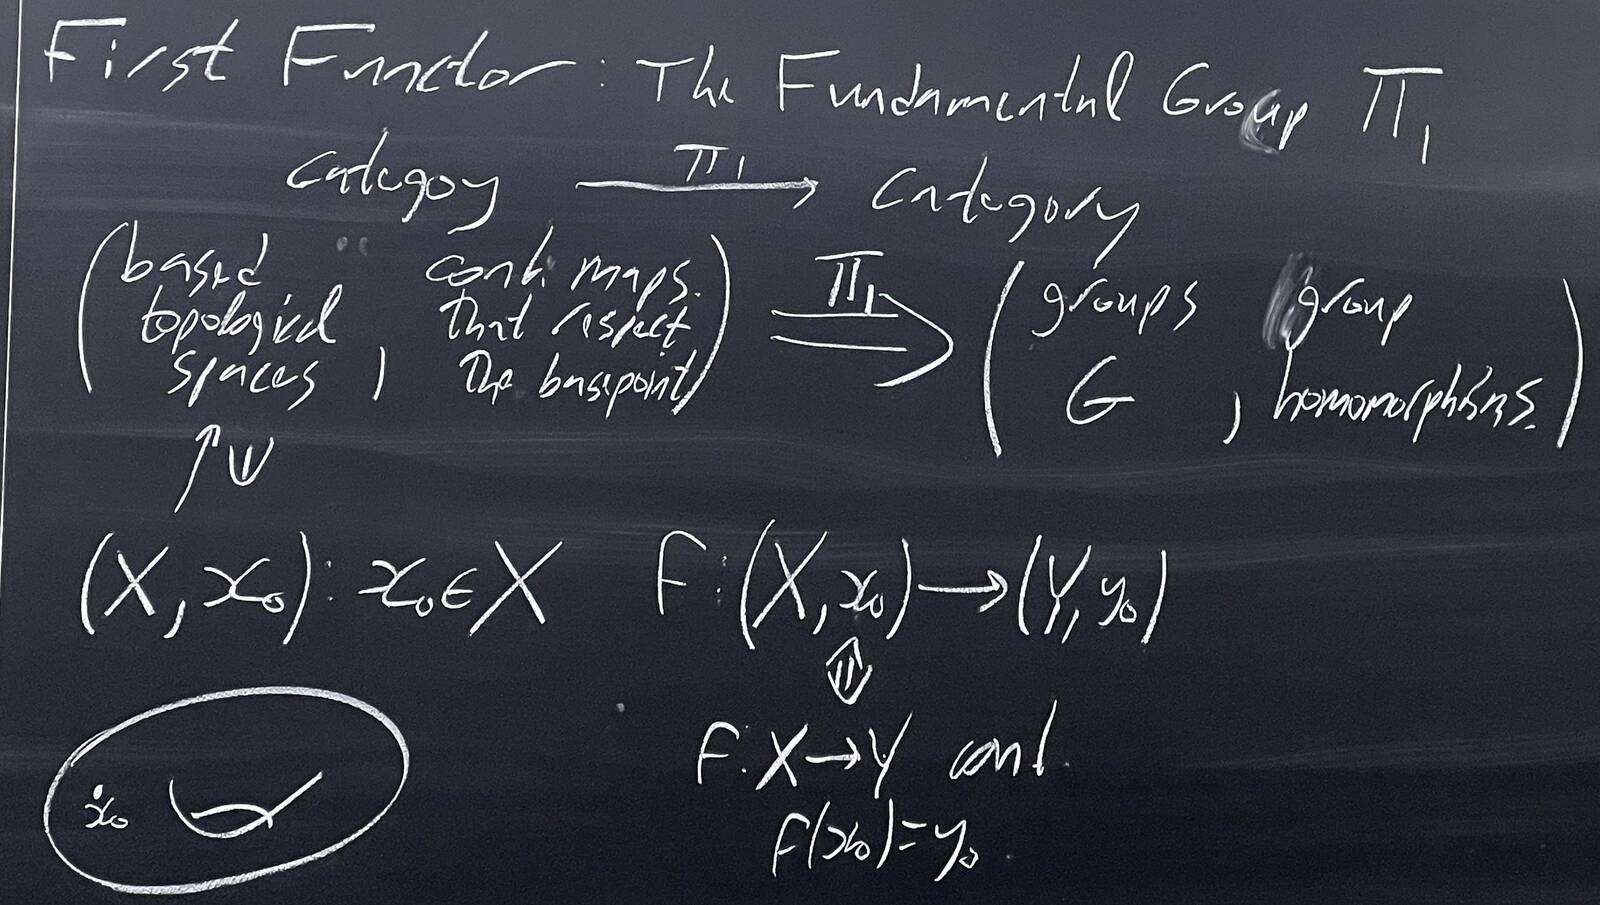 First Functor: The Fundamental Group π₁
Categoy —π₁→ Category
(based topological spaces, cont. maps that respect the basepoint) =π₁⇒ (groups G, group homomorphisms.)
↑ ψ
(X, x₀): x₀ ∈ X    F: (X, x₀) → (Y, y₀)
⇕
F: X → Y cont.
F(x₀) = y₀.
x₀